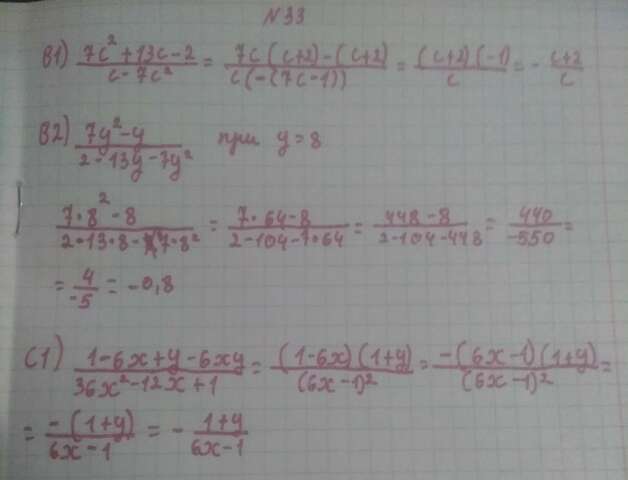 N33
B1) (7c² + 13c - 2)/(c - 7c²) = (7c(c+2) - (c+2))/(c(-(7c-1))) = ((c+2)(-1))/c = - (c+2)/c
B2) (7y² - y)/(2 - 13y - 7y²) при y = 8
(7·8² - 8)/(2·13·8 - 7·8²) = (7·64 - 8)/(2 - 104 - 7·64) = (448 - 8)/(2 - 104 - 448) = 440/-550 =
= 4/-5 = -0,8
C1) (1 - 6x + y - 6xy)/(36x² - 12x + 1) = ((1 - 6x)(1 + y))/(6x - 1)² = (-(6x - 1)(1 + y))/(6x - 1)² =
= (-(1 + y))/(6x - 1) = - (1 + y)/(6x - 1)